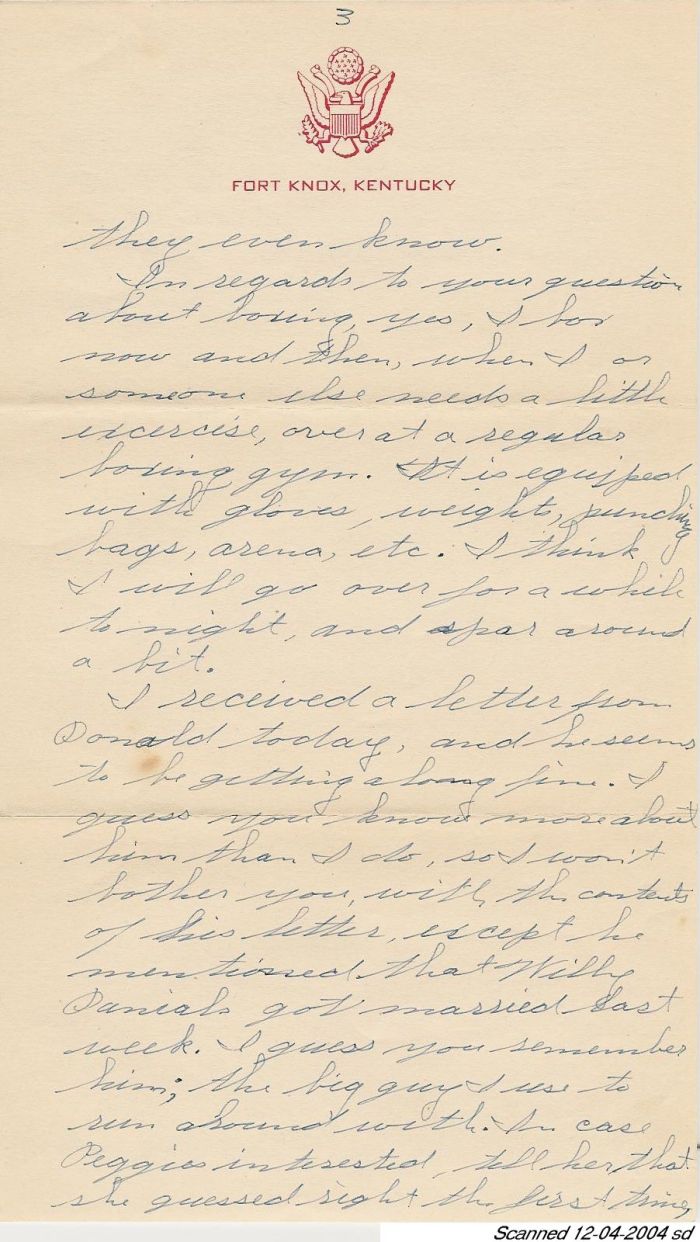 3
FORT KNOX, KENTUCKY
they even know.
In regards to your question
about boxing, yes, I box
now and then, when I or
someone else needs a little
excercise, over at a regular
boxing gym. It is equipped
with gloves, weights, punching
bags, arena, etc. I think
I will go over for a while
to night, and spar around
a bit.
I received a letter from
Donald today, and he seems
to be getting along fine. I
guess you know more about
him than I do, so I won't
bother you, with the contents
of his letter, except he
mentioned that Willy
Danials got married last
week. I guess you remember
him; the big guy I use to
run around with. In case
Peggie's interested, tell her that
she guessed right the first time,
Scanned 12-04-2004 sd